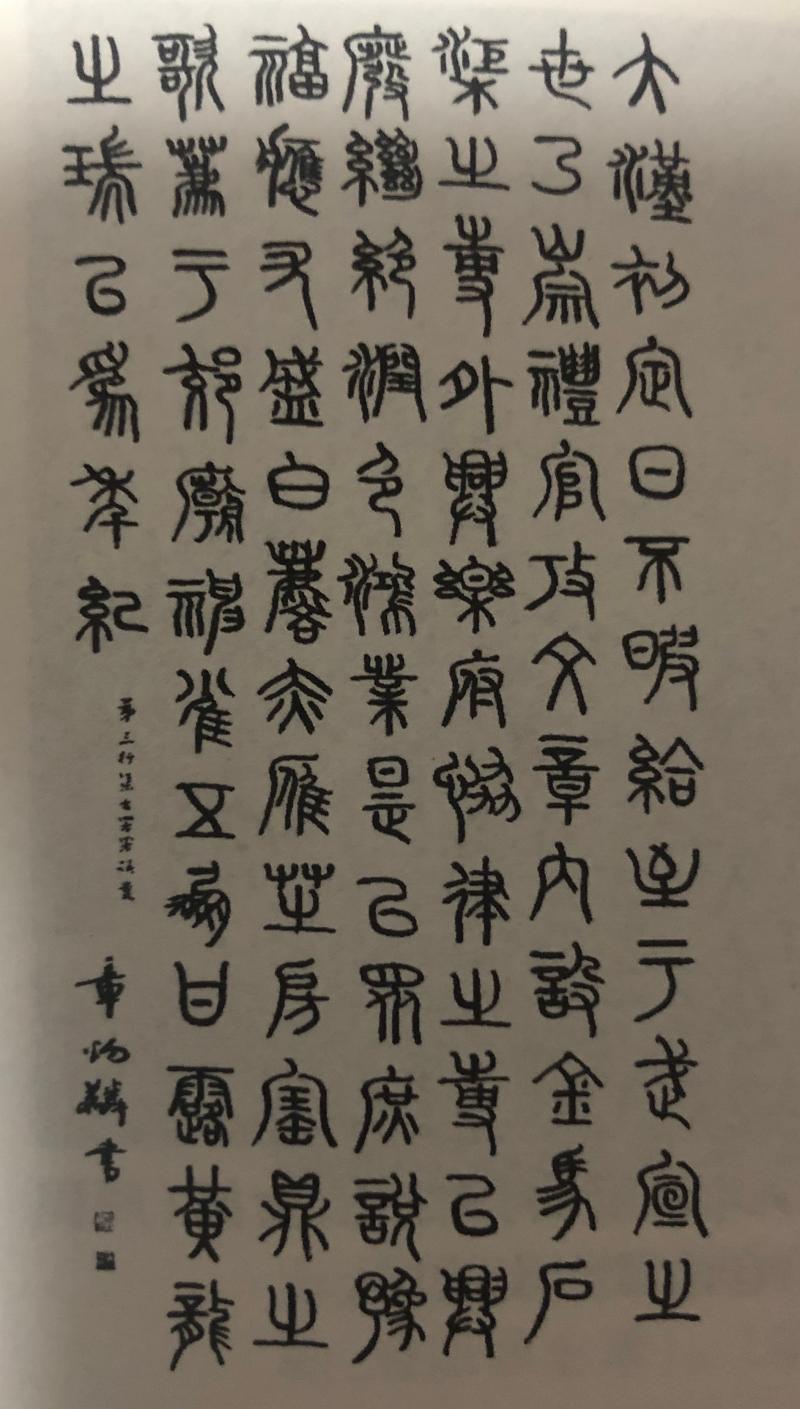 大漢初定日不暇給至于武宣之
世乃崇禮官攷文章內設金馬石
渠之事外興樂府協律之事㠯興
廢繼絕潤色鴻業是㠯眾庶說豫
福應尤盛白麐赤雁芝房寶鼎之
歌薦于郊廟神雀五鳳甘露黃龍
之瑞㠯為年紀
第三行
章炳麟書